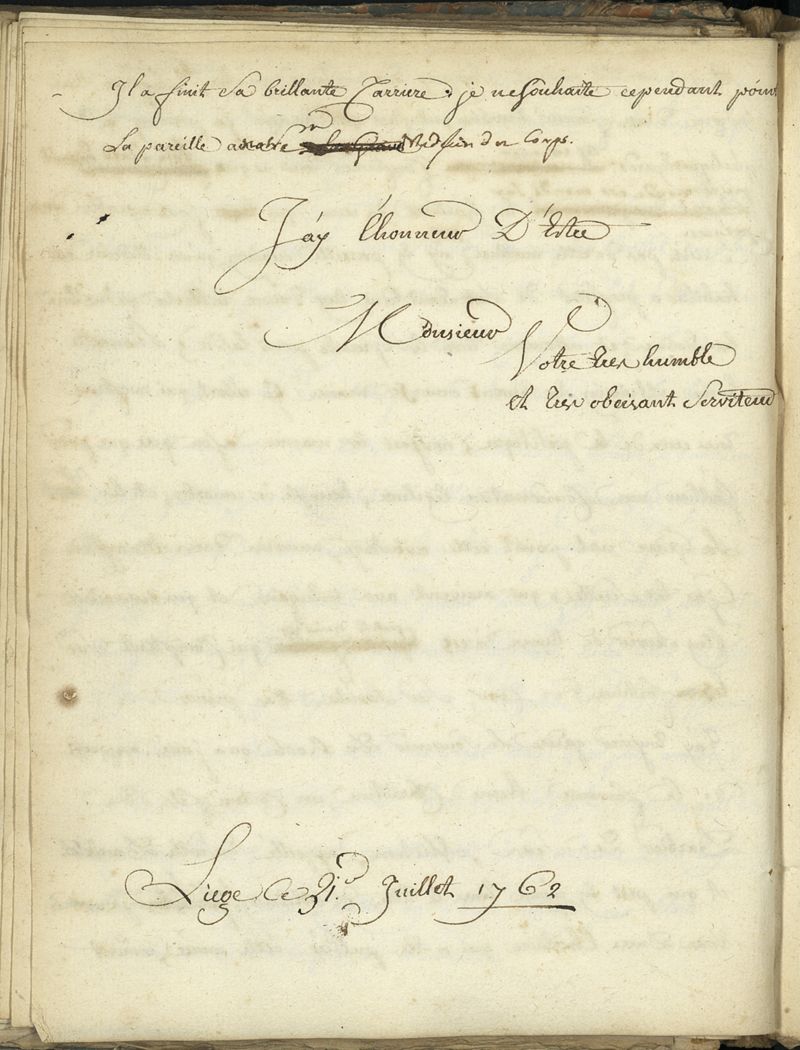 Il a finit Sa brillante Carriere. je ne Souhaite cependant point
La pareille a notre du Corps.
J'ay l'honneur D'Estre
Monsieur
Votre tres humble
et tres obeisant Serviteur
Liege Ce 31.e Juillet 1762